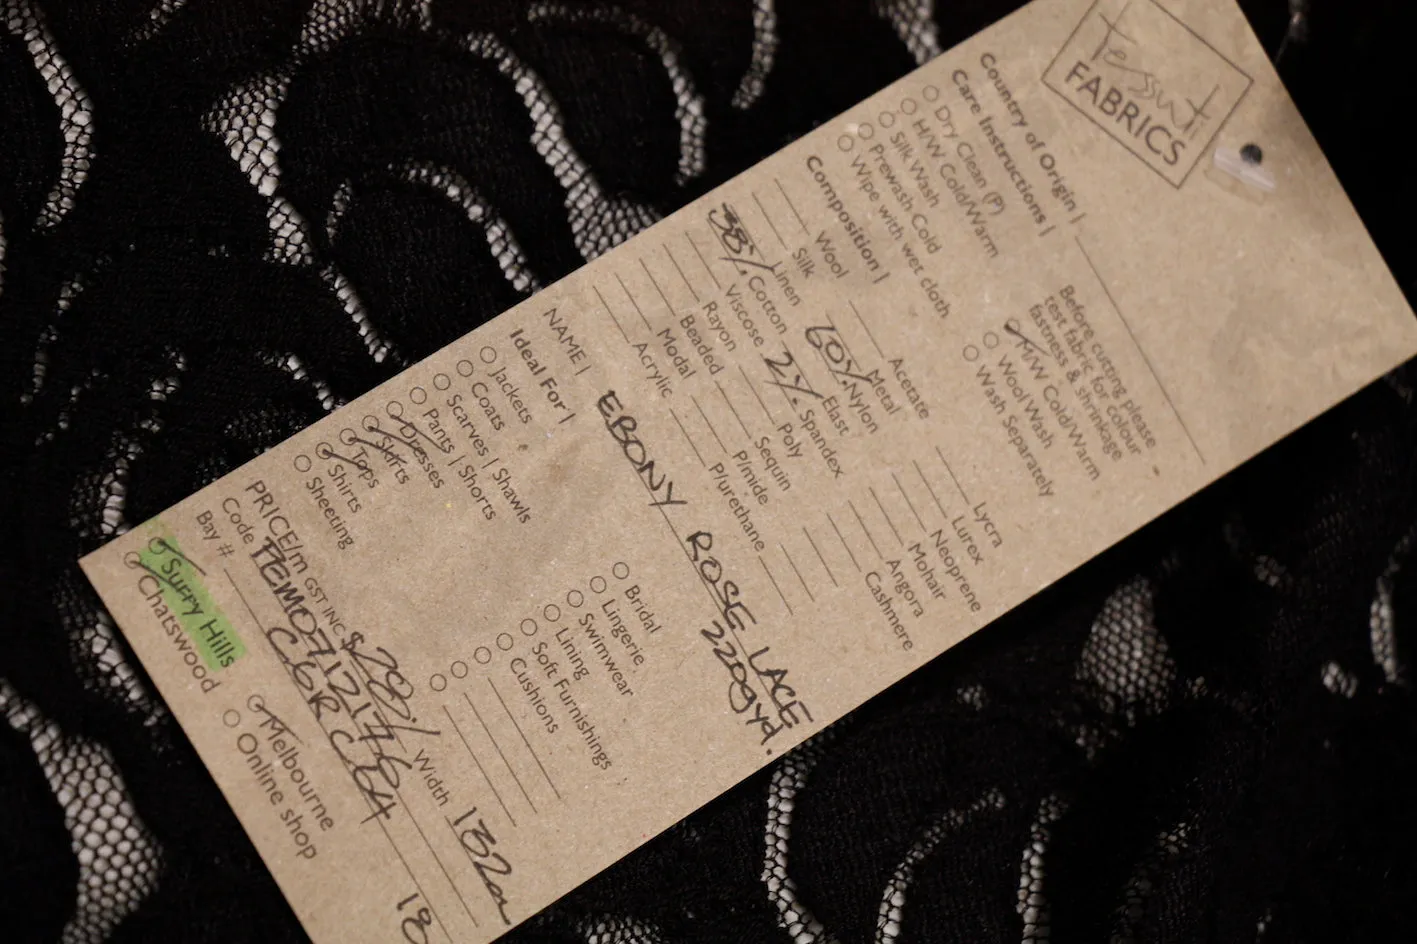 Tessuti
FABRICS
Country of Origin |
Care Instructions |
Dry Clean (P)
H/W Cold/Warm
Silk Wash
Prewash Cold
Wipe with wet cloth
Before cutting please
test fabric for colour
fastness & shrinkage
M/W Cold/Warm
Wool Wash
Wash Separately
Composition |
Wool
Silk
Linen
38% Cotton
Viscose
Rayon
Beaded
Modal
Acrylic
Acetate
Metal
60% Nylon
Elast
2% Spandex
Poly
Sequin
P/mide
P/urethane
Lycra
Lurex
Neoprene
Mohair
Angora
Cashmere
NAME | EBONY ROSE LACE
220gyd.
Ideal For |
Jackets
Coats
Scarves | Shawls
Pants | Shorts
Dresses
Skirts
Tops
Shirts
Sheeting
Bridal
Lingerie
Swimwear
Lining
Soft Furnishings
Cushions
PRICE/m GST INC Width 132cm
Code
Bay # 18
Surry Hills
Chatswood
Melbourne
Online shop